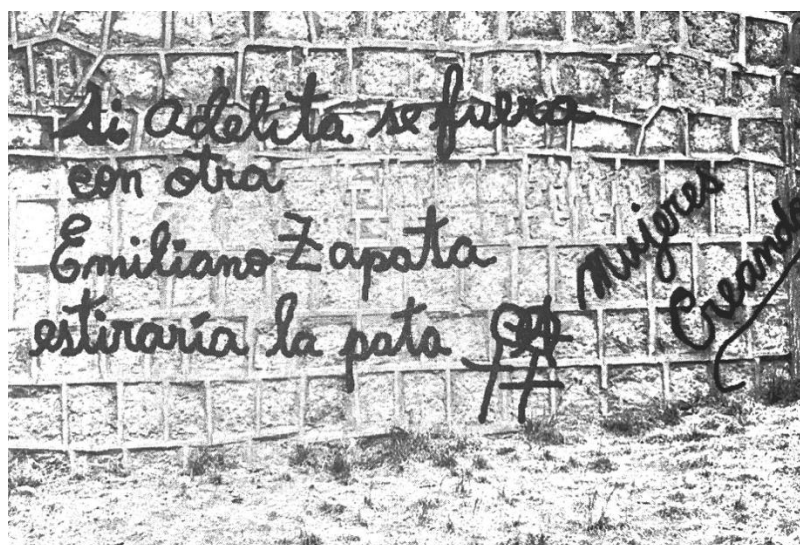 Si Adelita se fuera
con otra
Emiliano Zapata
estiraría la pata
Mujeres
Creando